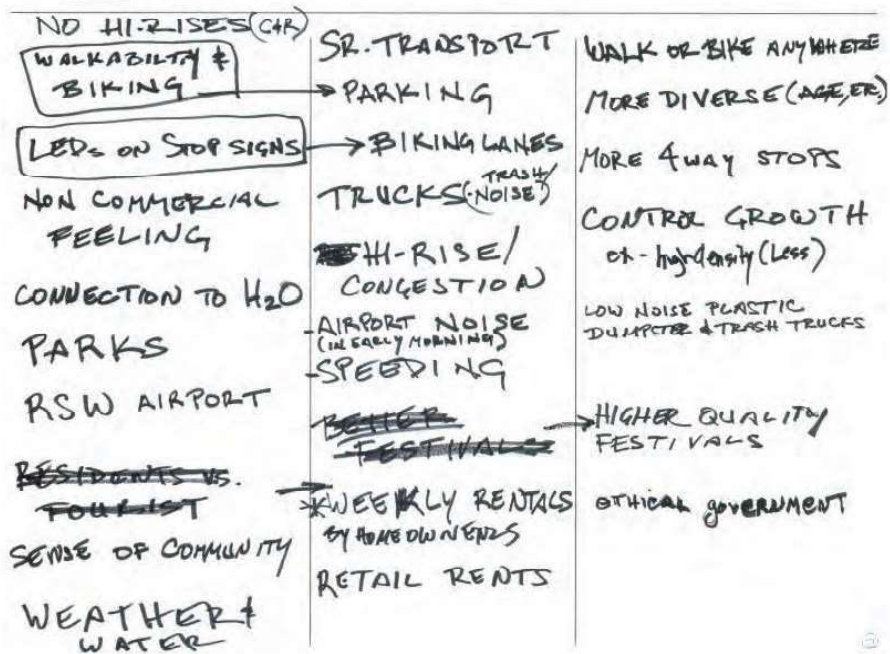 NO HI-RISES (C4R)
WALKABILTY &
BIKING
LEDs ON STOP SIGNS
NON COMMERCIAL
FEELING
CONNECTION TO H2O
PARKS
RSW AIRPORT
RESIDENTS VS.
TOURIST
SENSE OF COMMUNITY
WEATHER &
WATER
SR. TRANSPORT
PARKING
BIKING LANES
TRUCKS (TRASH/
NOISE)
HI-RISE/
CONGESTION
- AIRPORT NOISE
(IN EARLY MORNING)
- SPEEDING
BETTER
FESTIVALS
* WEEKLY RENTALS
BY HOMEOWNERS
RETAIL RENTS
WALK OR BIKE ANYWHERE
MORE DIVERSE (AGE,
MORE 4 WAY STOPS
CONTROL GROWTH
high density (Less)
LOW NOISE PLASTIC
DUMPSTER & TRASH TRUCKS
HIGHER QUALITY
FESTIVALS
ETHICAL GOVERNMENT